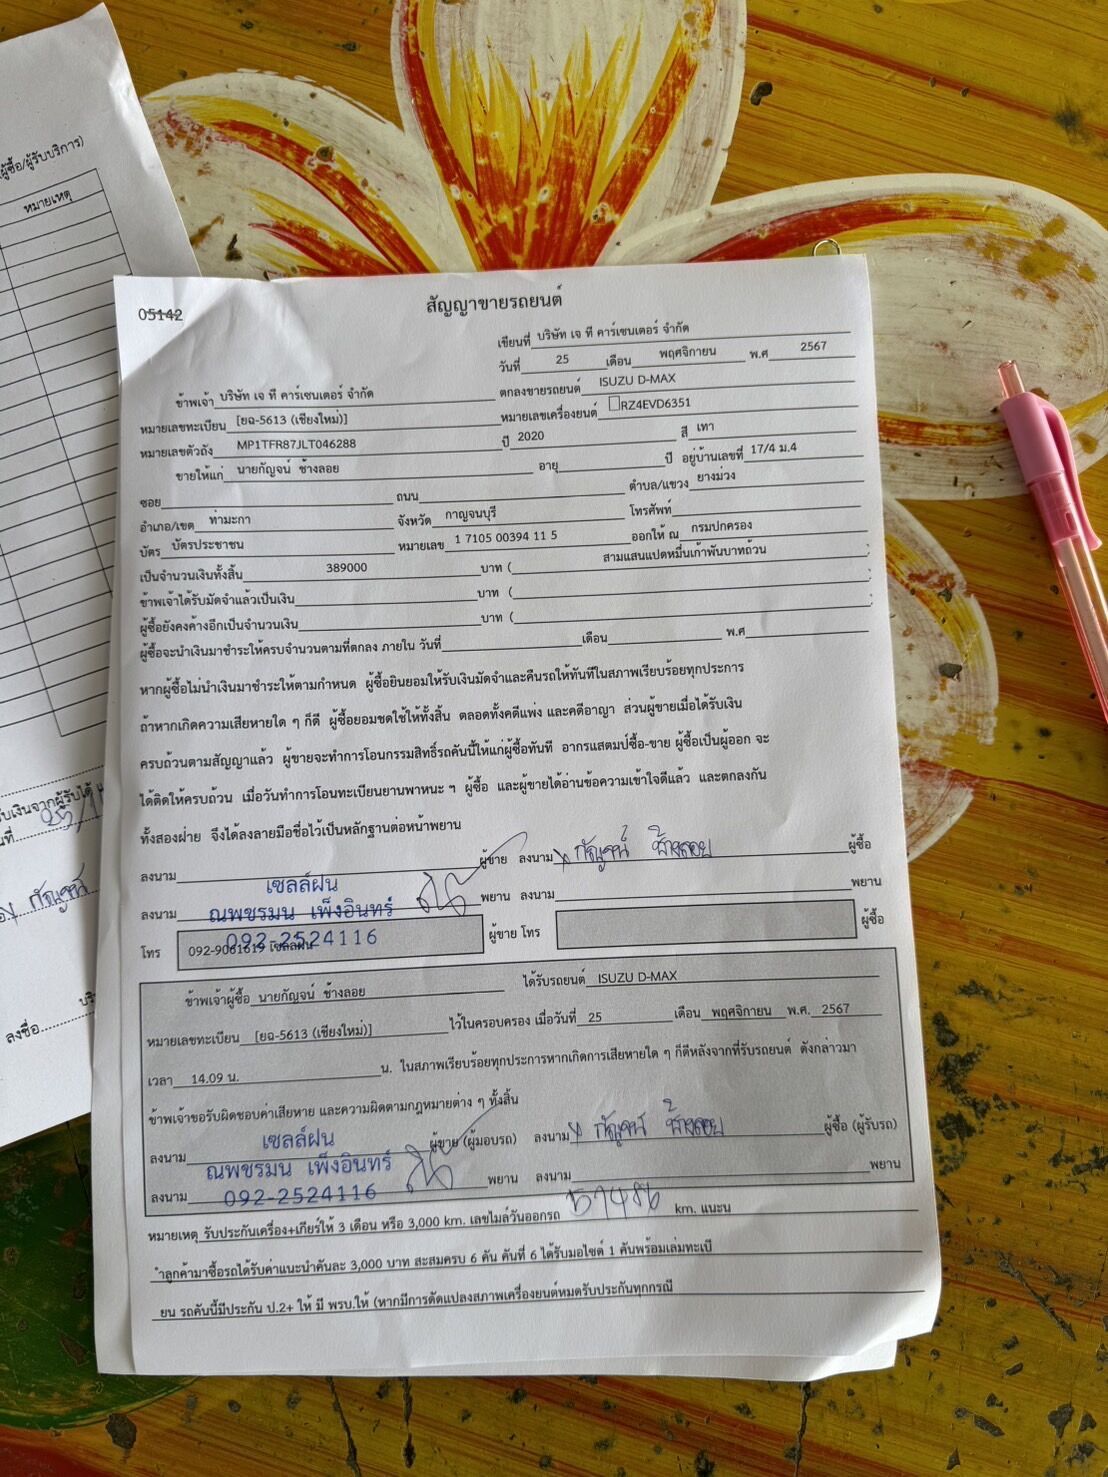 ผู้ซื้อ/ผู้รับบริการ)
หมายเหตุ
05142
สัญญาขายรถยนต์
เขียนที่ บริษัท เจ ที คาร์เซนเตอร์ จำกัด
วันที่ 25 เดือน พฤศจิกายน พ.ศ 2567
ข้าพเจ้า บริษัท เจ ที คาร์เซนเตอร์ จำกัด ตกลงขายรถยนต์ ISUZU D-MAX
หมายเลขทะเบียน [ยฉ-5613 (เชียงใหม่)] หมายเลขเครื่องยนต์ RZ4EVD6351
หมายเลขตัวถัง MP1TFR87JLT046288 ปี 2020 สี เทา
ขายให้แก่ นายกัญจน์ ช้างลอย อายุ ปี อยู่บ้านเลขที่ 17/4 ม.4
ซอย ถนน ตำบล/แขวง ยางม่วง
อำเภอ/เขต ท่ามะกา จังหวัด กาญจนบุรี โทรศัพท์
บัตร บัตรประชาชน หมายเลข 1 7105 00394 11 5 ออกให้ ณ กรมปกครอง
เป็นจำนวนเงินทั้งสิ้น 389000 บาท ( สามแสนแปดหมื่นเก้าพันบาทถ้วน )
ข้าพเจ้าได้รับมัดจำแล้วเป็นเงิน บาท ( )
ผู้ซื้อยังคงค้างอีกเป็นจำนวนเงิน บาท ( )
ผู้ซื้อจะนำเงินมาชำระให้ครบจำนวนตามที่ตกลง ภายใน วันที่ เดือน พ.ศ
หากผู้ซื้อไม่นำเงินมาชำระให้ตามกำหนด ผู้ซื้อยินยอมให้รับเงินมัดจำและคืนรถให้ทันทีในสภาพเรียบร้อยทุกประการ
ถ้าหากเกิดความเสียหายใด ๆ ก็ดี ผู้ซื้อยอมชดใช้ให้ทั้งสิ้น ตลอดทั้งคดีแพ่ง และคดีอาญา ส่วนผู้ขายเมื่อได้รับเงิน
ครบถ้วนตามสัญญาแล้ว ผู้ขายจะทำการโอนกรรมสิทธิ์รถคันนี้ให้แก่ผู้ซื้อทันที อากรแสตมป์ซื้อ-ขาย ผู้ซื้อเป็นผู้ออก จะ
ได้ติดให้ครบถ้วน เมื่อวันทำการโอนทะเบียนยานพาหนะ ฯ ผู้ซื้อ และผู้ขายได้อ่านข้อความเข้าใจดีแล้ว และตกลงกัน
ทั้งสองฝ่าย จึงได้ลงลายมือชื่อไว้เป็นหลักฐานต่อหน้าพยาน
ลงนาม ผู้ขาย ลงนาม x กัญจน์ ช้างลอย ผู้ซื้อ
เซลล์ฝน
ลงนาม ณพชรมน เพ็งอินทร์ พยาน ลงนาม พยาน
092-2524116
โทร 092-9061619 เซลล์ฝน ผู้ขาย โทร ผู้ซื้อ
ข้าพเจ้าผู้ซื้อ นายกัญจน์ ช้างลอย ได้รับรถยนต์ ISUZU D-MAX
หมายเลขทะเบียน [ยฉ-5613 (เชียงใหม่)] ไว้ในครอบครอง เมื่อวันที่ 25 เดือน พฤศจิกายน พ.ศ. 2567
เวลา 14.09 น. น. ในสภาพเรียบร้อยทุกประการหากเกิดการเสียหายใด ๆ ก็ดีหลังจากที่รับรถยนต์ ดังกล่าวมา
ข้าพเจ้าขอรับผิดชอบค่าเสียหาย และความผิดตามกฎหมายต่าง ๆ ทั้งสิ้น
เซลล์ฝน
ลงนาม ผู้ขาย (ผู้มอบรถ) ลงนาม x กัญจน์ ช้างลอย ผู้ซื้อ (ผู้รับรถ)
ณพชรมน เพ็งอินทร์
ลงนาม 092-2524116 พยาน ลงนาม พยาน
หมายเหตุ รับประกันเครื่อง+เกียร์ให้ 3 เดือน หรือ 3,000 km. เลขไมล์วันออกรถ 57486 km. แนะน
ำลูกค้ามาซื้อรถได้รับค่าแนะนำคันละ 3,000 บาท สะสมครบ 6 คัน คันที่ 6 ได้รับมอไซต์ 1 คันพร้อมเล่มทะเบี
ยน รถคันนี้มีประกัน ป.2+ ให้ มี พรบ.ให้ (หากมีการดัดแปลงสภาพเครื่องยนต์หมดรับประกันทุกกรณี
รับเงินจากผู้รับได้
กัญจน์
ลงชื่อ